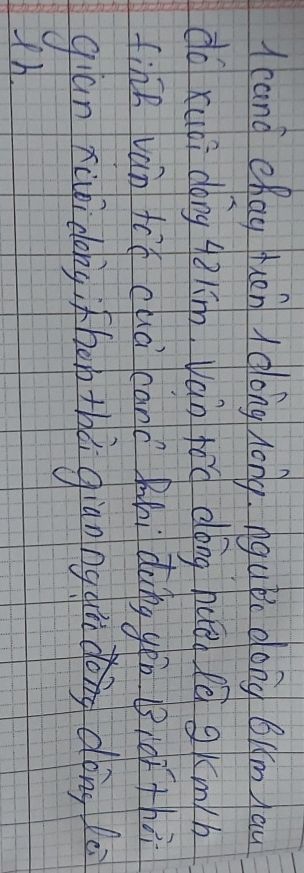 1 canô chạy trên 1 dòng sông. ngược dòng 6km sau
đó xuôi dòng 48km. Vận tốc dòng nước là 2km/h
tính vận tốc của canô khi đứng yên. Biết thời
gian xuôi dòng, nhiều hơn thời gian ngược dòng là
1h.